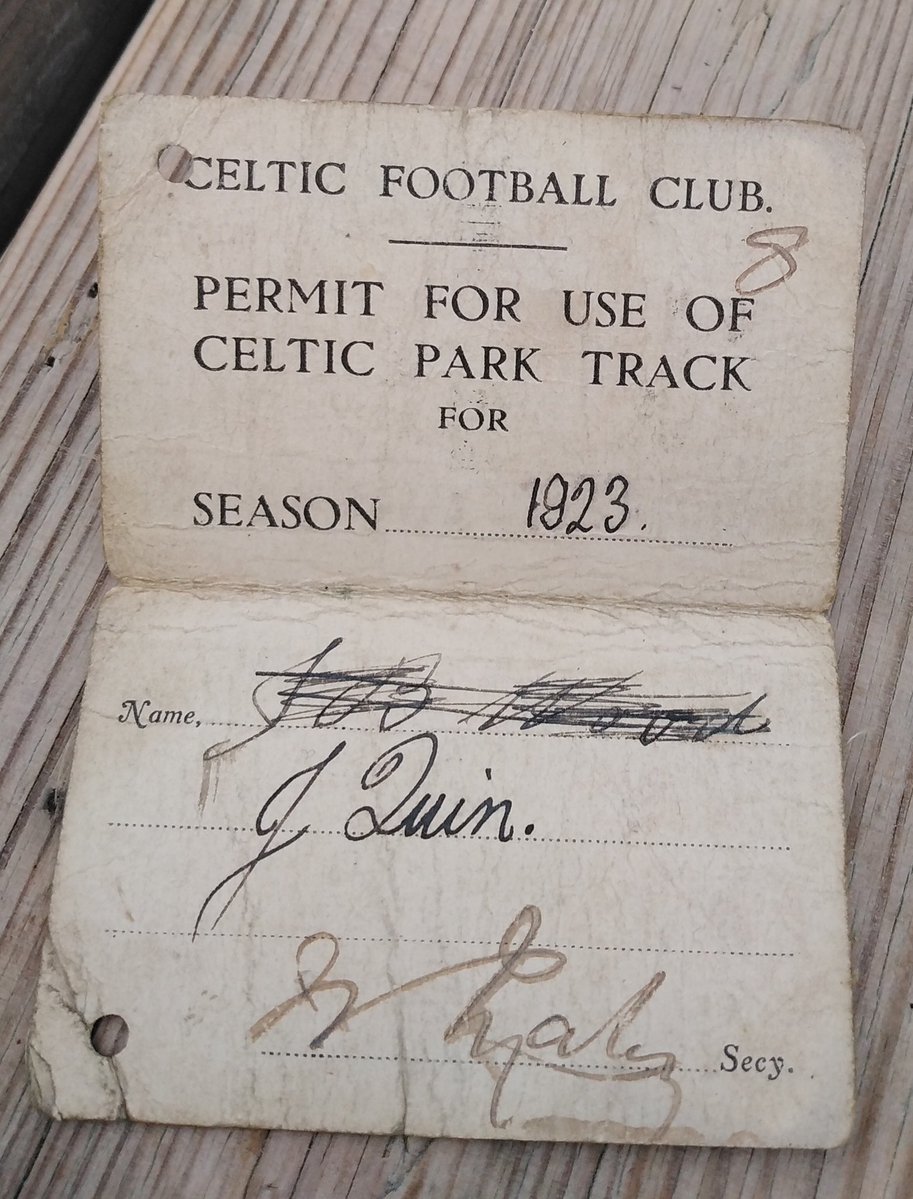 CELTIC FOOTBALL CLUB.
8
PERMIT FOR USE OF
CELTIC PARK TRACK
FOR
SEASON 1923.
Name,
J Quin.
Secy.